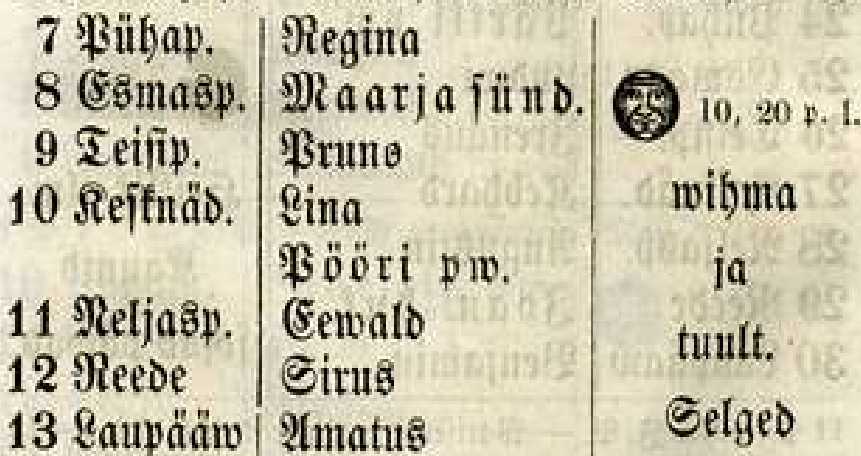 7 Pühap. Regina
8 Esmasp. Maarja sünd. 10, 20 p. l.
9 Teisip. Pruno
10 Kesknäd. Lina wihma
Pööri pw. ja
11 Neljasp. Eewald
12 Reede Sirus tuult.
13 Laupääw Amatus Selged